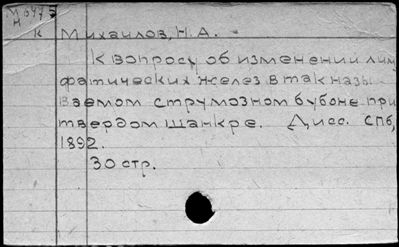 М 647
Н
К Михайлов, Н. А. -
К вопросу об изменении лим
фатических желез в так назы
ваемом струмозном бубоне при
твердом шанкре. Дисс. СПб,
1892.
30 стр.